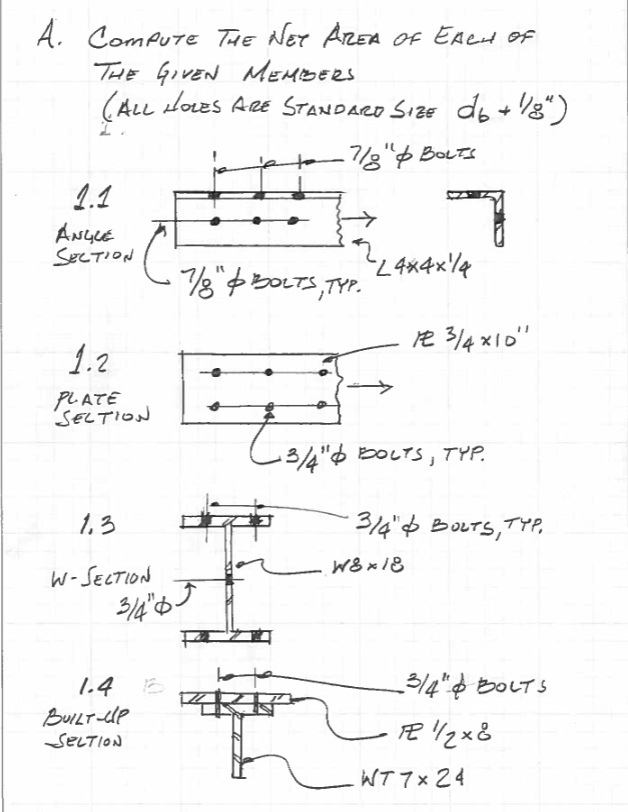 A. COMPUTE THE NET AREA OF EACH OF
THE GIVEN MEMBERS
(ALL HOLES ARE STANDARD SIZE db + 1/8")
7/8" φ BOLTS
1.1
ANGLE
SECTION
L4x4x1/4
7/8" φ BOLTS, TYP.
PL 3/4 x 10"
1.2
PLATE
SECTION
3/4" φ BOLTS, TYP.
1.3
3/4" φ BOLTS, TYP.
W8x18
W-SECTION
3/4" φ
1.4
3/4" φ BOLTS
BUILT-UP
SECTION
PL 1/2 x 8
WT 7x24